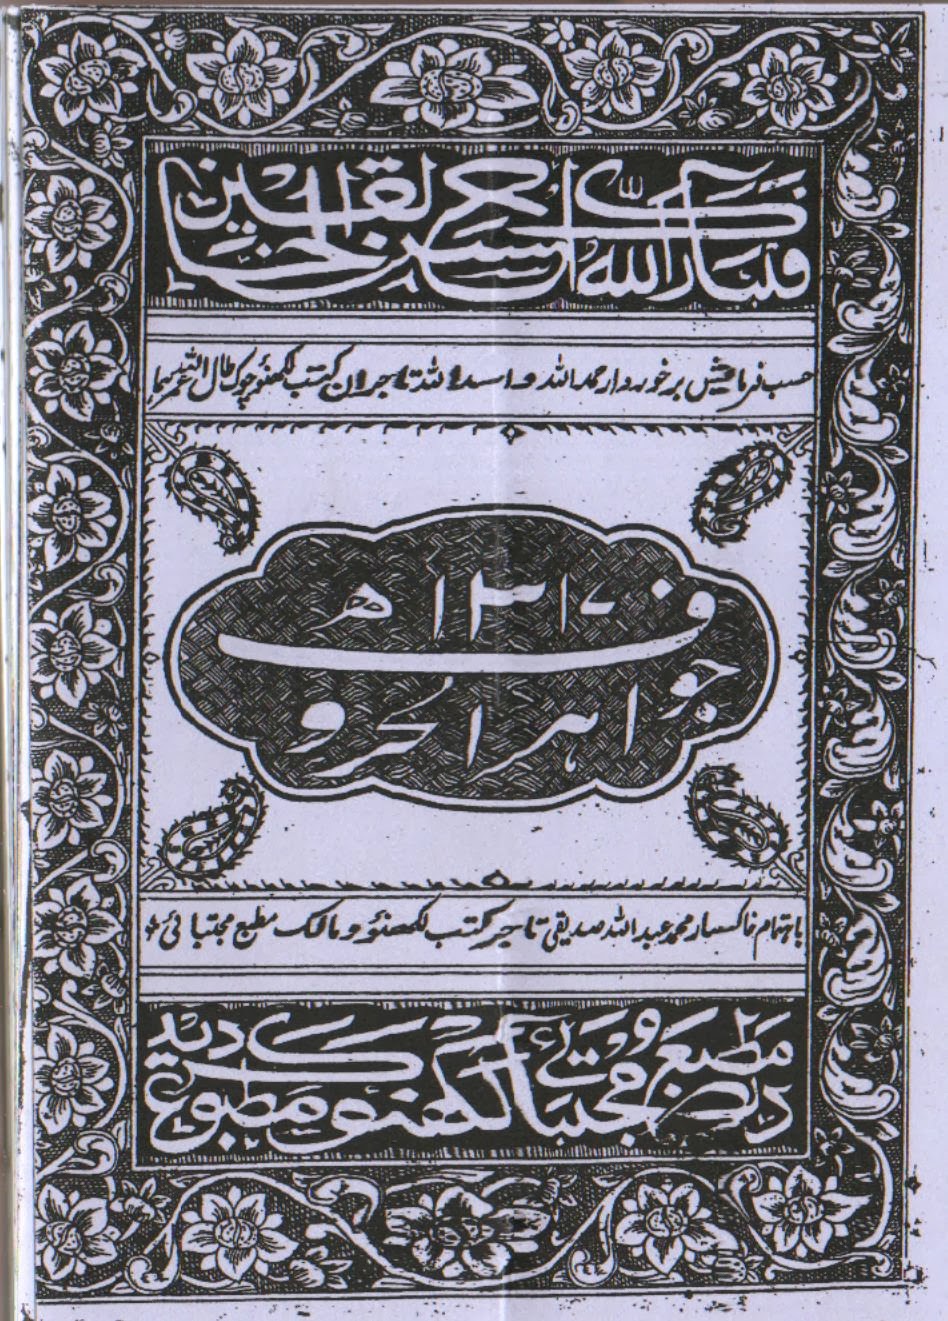 فتبارک الله احسن الخالقین
حسب فرمایش برخوردار حمد الله و اسد الله تاجران کتب لکھنؤ چوک طال الله عمرہما
۱۳۱۷ھ
جواہر الحروف
باہتمام خاکسار محمد عبد الله صدیقی تاجر کتب لکھنؤ و مالک مطبع مجتبائی
در مطبع مجتبائی لکھنؤ مطبوع گردید